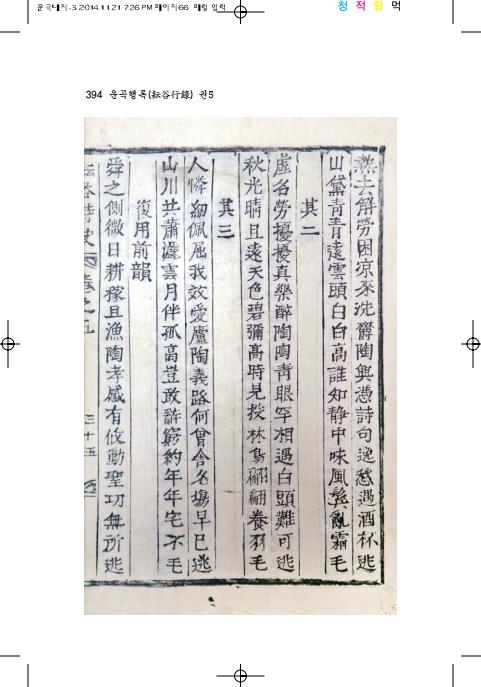 운곡내지-3 2014.11.21 7:26 PM 페이지66 매일 입력
청 적 황 먹
394 운곡행록(耘谷行錄) 권5
熱去解勞困凉來洗欝陶興憑詩句逸愁遇酒杯逃
山黛靑靑遠雲頭白白高誰知静中味風鬂亂霜毛
其二
虛名勞擾擾真樂醉陶陶靑眼罕相遇白頭難可逃
秋光晴且遠天色碧彌高時見投林鳥翩翩養羽毛
其三
人憐紉佩屈我效愛廬陶義路何曾舍名塲早已逃
山川共蕭灑雲月伴孤高豈敢辭窮約年年宅不毛
復用前韻
舜之側微日耕稼且漁陶孝感有攸動聖功無所逃
耘谷詩史 卷之五 三十五